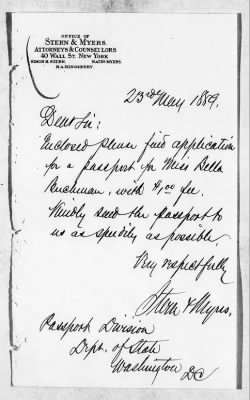 OFFICE OF
STERN & MYERS,
ATTORNEYS & COUNSELLORS
40 WALL ST. NEW YORK
SIMON H. STERN. NATHL MYERS.
H.A. KINGSBURY.
23rd May 1889.
Dear Sir:
Enclosed please find application
for a passport for Miss Bella
Buchman, with $1.00 fee.
Kindly send the passport to
us as speedily as possible.
Very respectfully
Stern & Myers.
Passport Division
Dept. of State
Washington
DC